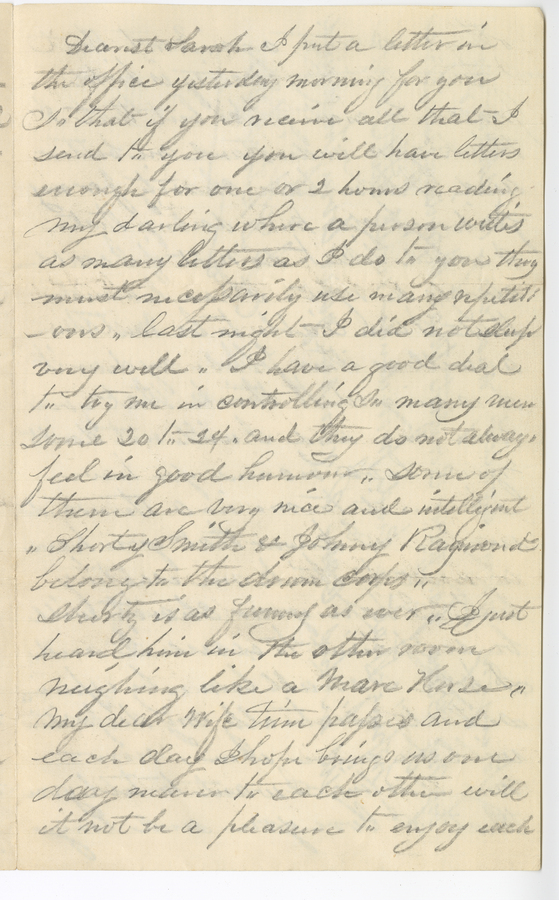 Dearest Sarah I put a letter in
the office yesterday morning for you
So that if you receive all that I
send to you you will have letters
enough for one or 2 hours reading
my darling where a person writes
as many letters as I do to you they
must necessarily use many repetiti
-ons „ last night I did not sleep
very well „ I have a good deal
to try me in controlling So many men
some 20 to 24 „ and they do not always
feel in good humour „ some of
them are very nice and intelligent
„ Shorty Smith & Johny Raymond
belong to the drum corps „
Shorty is as funny as ever „ I just
heard him in the other room
neighing like a Mare Horse „
my dear Wife time passes and
each day I hope brings us one
day nearer to each other will
it not be a pleasure to enjoy each